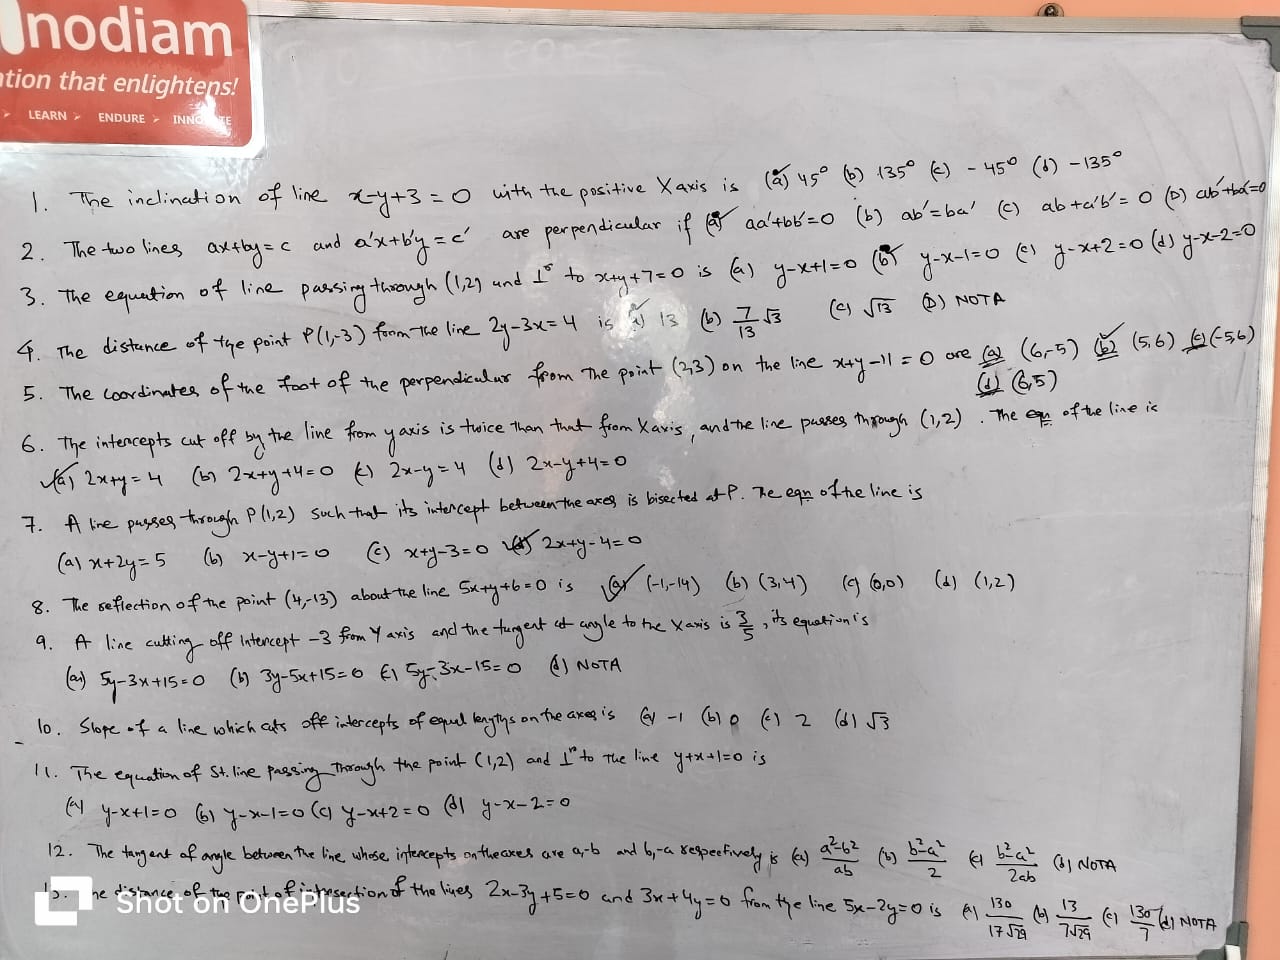 nodiam
ation that enlightens!
> LEARN > ENDURE > INNOVATE
1. The inclination of line x-y+3=0 with the positive X axis is (a) 45° (b) 135° (c) -45° (d) -135°
2. The two lines ax+by=c and a'x+b'y=c' are perpendicular if (a) aa'+bb'=0 (b) ab'=ba' (c) ab+a'b'=0 (D) ab'+ba'=0
3. The equation of line passing through (1,2) and ⊥r to x+y+7=0 is (a) y-x+1=0 (b) y-x-1=0 (c) y-x+2=0 (d) y-x-2=0
4. The distance of tge point P(1,-3) from the line 2y-3x=4 is (a) 13 (b) 7/13 √3 (c) √13 (D) NOTA
5. The coordinates of the foot of the perpendicular from the point (2,3) on the line x+y-11=0 are (a) (6,-5) (b) (5,6) (c) (-5,6)
(d) (6,5)
6. The intercepts cut off by the line from y axis is twice than that from X axis, and the line passes through (1,2). The eqn of the line is
(a) 2x+y=4 (b) 2x+y+4=0 (c) 2x-y=4 (d) 2x-y+4=0
7. A line passes through P(1,2) such that its intercept between the axes is bisected at P. The eqn of the line is
(a) x+2y=5 (b) x-y+1=0 (c) x+y-3=0 (d) 2x+y-4=0
8. The reflection of the point (4,-13) about the line 5x+y+6=0 is (a) (-1,-14) (b) (3,4) (c) (0,0) (d) (1,2)
9. A line cutting off Intercept -3 from Y axis and the tangent at angle to the X axis is 3/5, its equation is
(a) 5y-3x+15=0 (b) 3y-5x+15=0 (c) 5y-3x-15=0 (d) NOTA
10. Slope of a line which cuts off intercepts of equal lengths on the axes is (a) -1 (b) 0 (c) 2 (d) √3
11. The equation of St. line passing through the point (1,2) and ⊥r to the line y+x+1=0 is
(a) y-x+1=0 (b) y-x-1=0 (c) y-x+2=0 (d) y-x-2=0
12. The tangent of angle between the line whose intercepts on the axes are a,-b and b,-a respectively is (a) a²-b²/ab (b) b²-a²/2 (c) b²-a²/2ab (d) NOTA
13. The distance of the point of intersection of the lines 2x-3y+5=0 and 3x+4y=0 from the line 5x-2y=0 is (a) 130/17√29 (b) 13/7√29 (c) 130/7 (d) NOTA
Shot on OnePlus